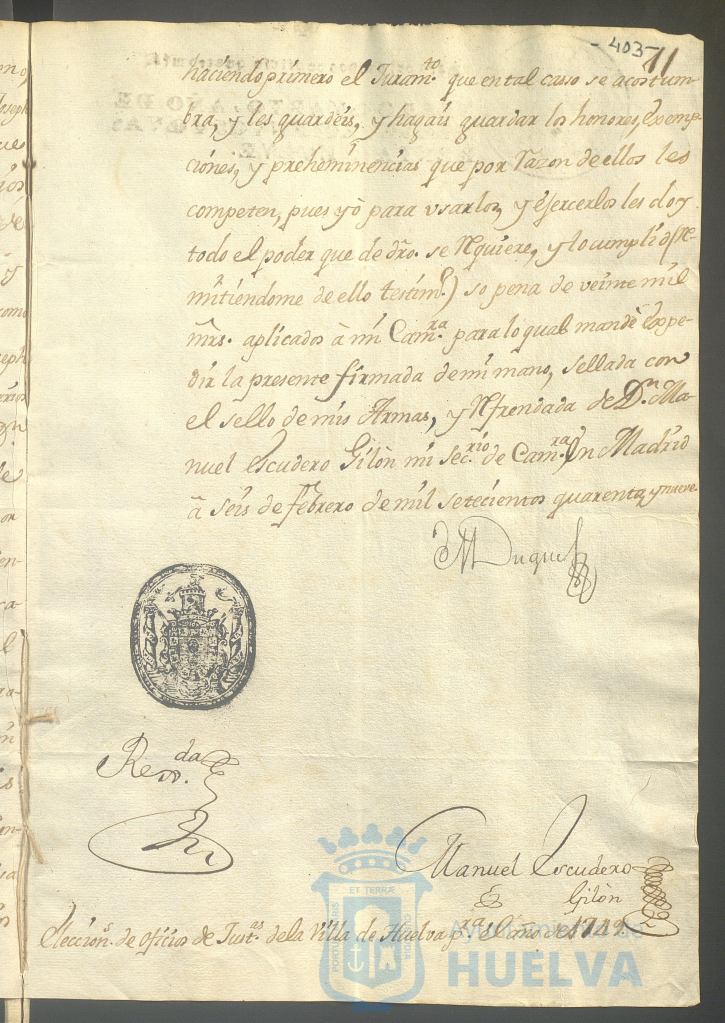 - 403 -
11
haciendo primero el Juram.to que en tal casso se acostum-
bra, y les guardeis, y hagais guardar los honores, exemp-
ciones, y preheminencias que por razon de ellos les
competen, pues yò para vsarlos, y ejercerlos les doy
todo el poder que de dro. se requiere, y lo cumplid (re-
mitiendome de ello testim.o) so pena de veinte mil
mrs. aplicados à mi Cam.ra para lo qual mandè expe-
dir la presente firmada de mi mano, sellada con
el sello de mis Armas, y refrendada de D.n Ma-
nuel Escudero Gilòn mi sec.rio de Cam.ra En Madrid
à seis de febrero de mil setecientos quarenta y nueve
el Duque
Re..da
Manuel Escudero
Gilòn
Eleccion. de oficios de Just.as de la Villa de Huelva p.ra el año de 1749.
PORTUS MARIS ET TERRÆ CUSTODIA
Ayuntamiento de
HUELVA